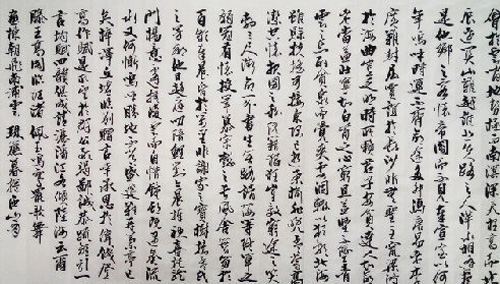 會於雲間地勢極而南溟深天柱高而北
辰遠關山難越誰悲失路之人萍水相逢盡
是他鄉之客懷帝閽而不見奉宣室以何
年嗚呼時運不齊命途多舛馮唐易老李
廣難封屈賈誼於長沙非無聖主竄梁鴻
於海曲豈乏明時所賴君子安貧達人知命
老當益壯寧知白首之心窮且益堅不墜青
雲之志酌貪泉而覺爽處涸轍以猶歡北海
雖賒扶搖可接東隅已逝桑榆非晚孟嘗高
潔空懷報國之情阮籍猖狂豈效窮途之哭
勃三尺微命一介書生無路請纓等終軍之
弱冠有懷投筆慕宗愨之長風舍簪笏於
百齡奉晨昏於萬里非謝家之寶樹接孟氏
之芳鄰他日趨庭叨陪鯉對今晨捧袂喜托龍
門楊意不逢撫凌雲而自惜鍾期既遇奏流
水以何慚嗚呼勝地不常盛筵難再蘭亭已
矣梓澤丘墟臨別贈言幸承恩於偉餞登
高作賦是所望於群公敢竭鄙誠恭疏短引一
言均賦四韻俱成請灑潘江各傾陸海云爾
滕王高閣臨江渚佩玉鳴鸞罷歌舞
畫棟朝飛南浦雲珠簾暮捲西山雨